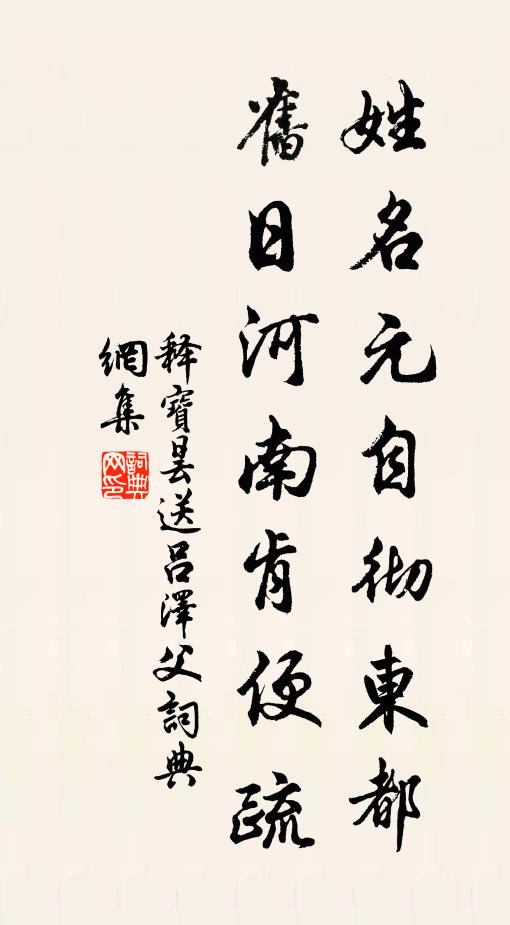 姓名元自彻東都
舊日河南肯便疏
释寶曇送吕澤父詞典
網集
詞典網印